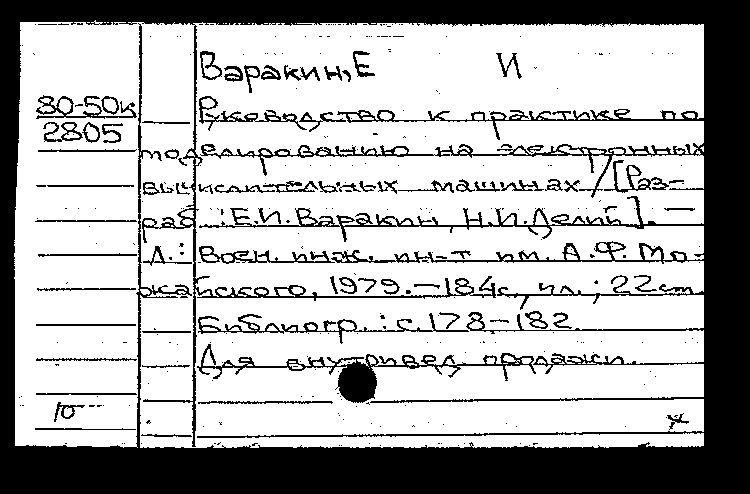 Варакин, Е И
80-50к
2805
Руководство к практике по
моделированию на электронных
вычислительных машинах / [Раз-
раб .: Е.И. Варакин, Н.И. Делий]. —
Л.: Воен. инж. ин-т им. А.Ф. Мо-
жайского, 1979. — 184с., ил.; 22 см.
Библиогр.: с. 178-182
Для внутривед продажи.
10